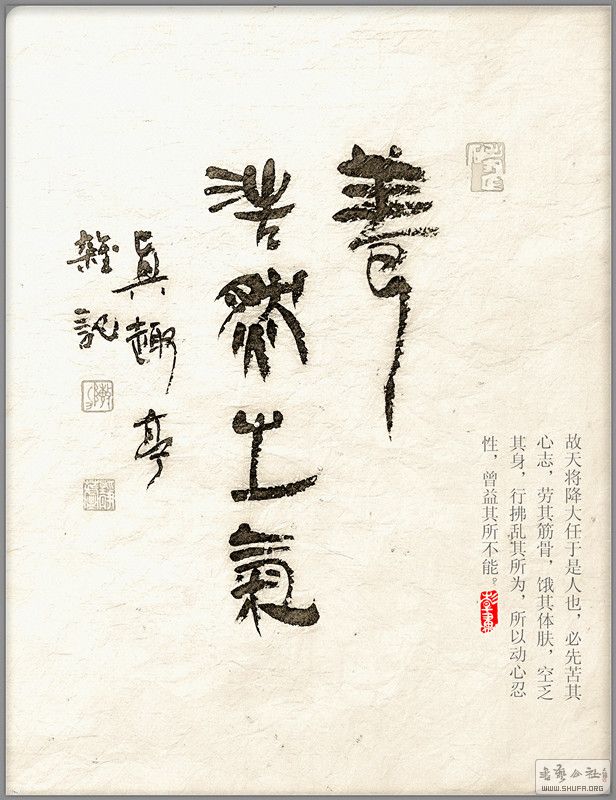 養
浩然之氣
眞趣亭
雜記
故天将降大任于是人也，必先苦其
心志，劳其筋骨，饿其体肤，空乏
其身，行拂乱其所为，所以动心忍
性，曾益其所不能。
書藝公社
WWW.SHUFA.ORG